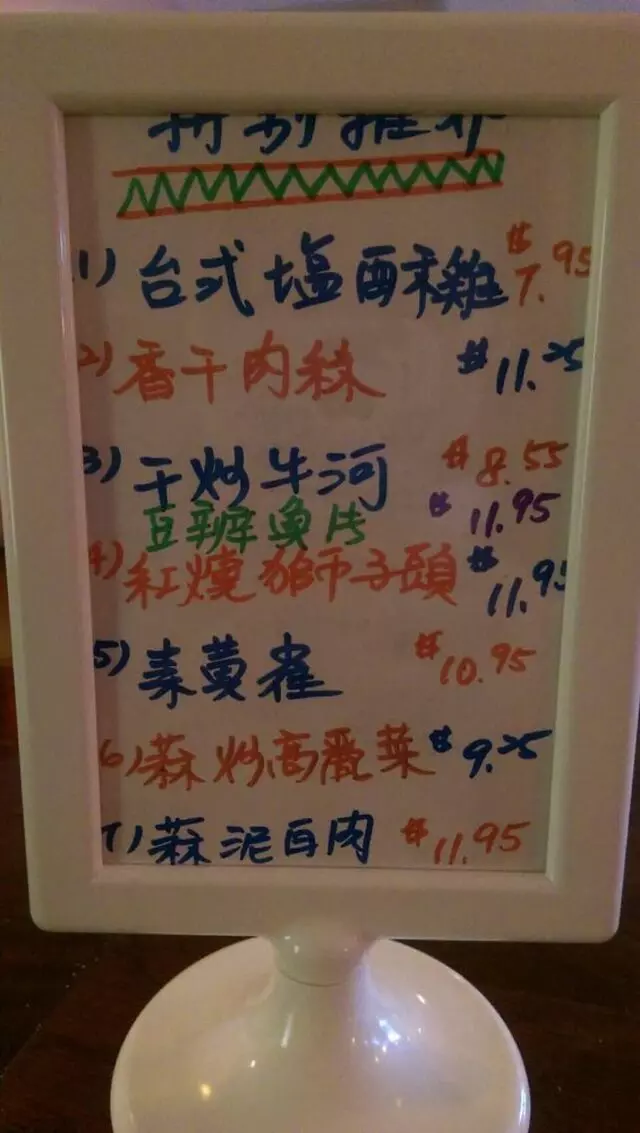 特别推介
1) 台式塩酥雞 $7.95
2) 香干肉絲 $11.25
3) 干炒牛河 $8.55
豆瓣魚片 $11.95
4) 紅燒獅子頭 $11.95
5) 素黄雀 $10.95
6) 蒜炒高麗菜 $9.25
7) 蒜泥白肉 $11.95